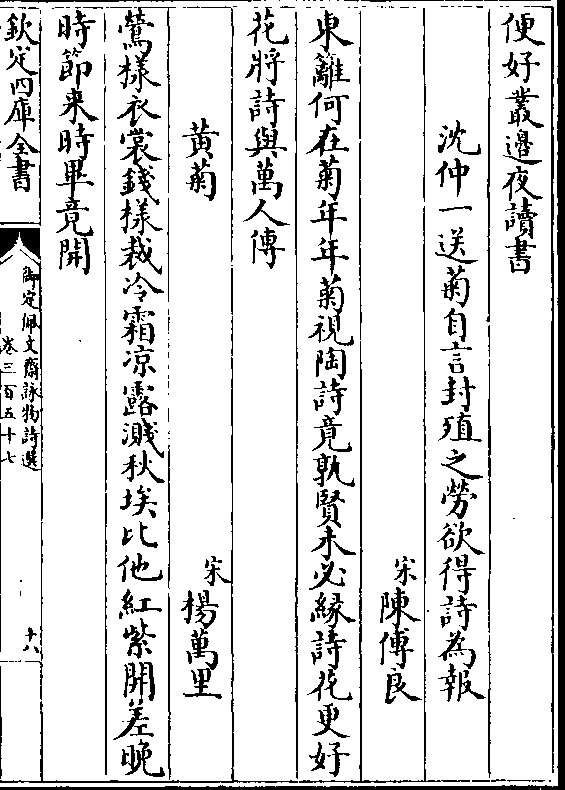 便好叢邉夜讀書
沈仲一送菊自言封殖之勞欲得詩為報
宋陳傅良
東籬何在菊年年菊視陶詩竟孰賢未必縁詩花更好
花將詩與萬人傳
黄菊
宋楊萬里
鶯様衣裳錢様裁冷霜凉露濺秋埃比他紅紫開差晚
時節来時畢竟開
欽定四庫全書
御定佩文齋詠物詩選
卷三百五十七
十八